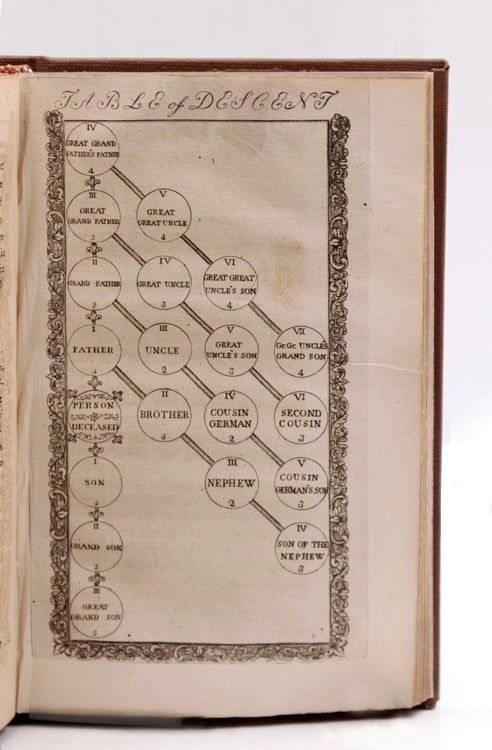 TABLE of DESCENT
IV
GREAT GRAND
FATHER'S FATHER
4
III
GREAT
GRAND FATHER
V
GREAT
GREAT UNCLE
4
II
GRAND FATHER
IV
GREAT UNCLE
3
VI
GREAT GREAT
UNCLE'S SON
4
I
FATHER
III
UNCLE
2
V
GREAT
UNCLE'S SON
3
VII
Gr. Gr. UNCLE'S
GRAND SON
4
PERSON
DECEASED
II
BROTHER
IV
COUSIN
GERMAN
2
VI
SECOND
COUSIN
3
I
SON
III
NEPHEW
2
V
COUSIN
GERMAN'S SON
3
II
GRAND SON
IV
SON OF THE
NEPHEW
3
III
GREAT
GRAND SON
3